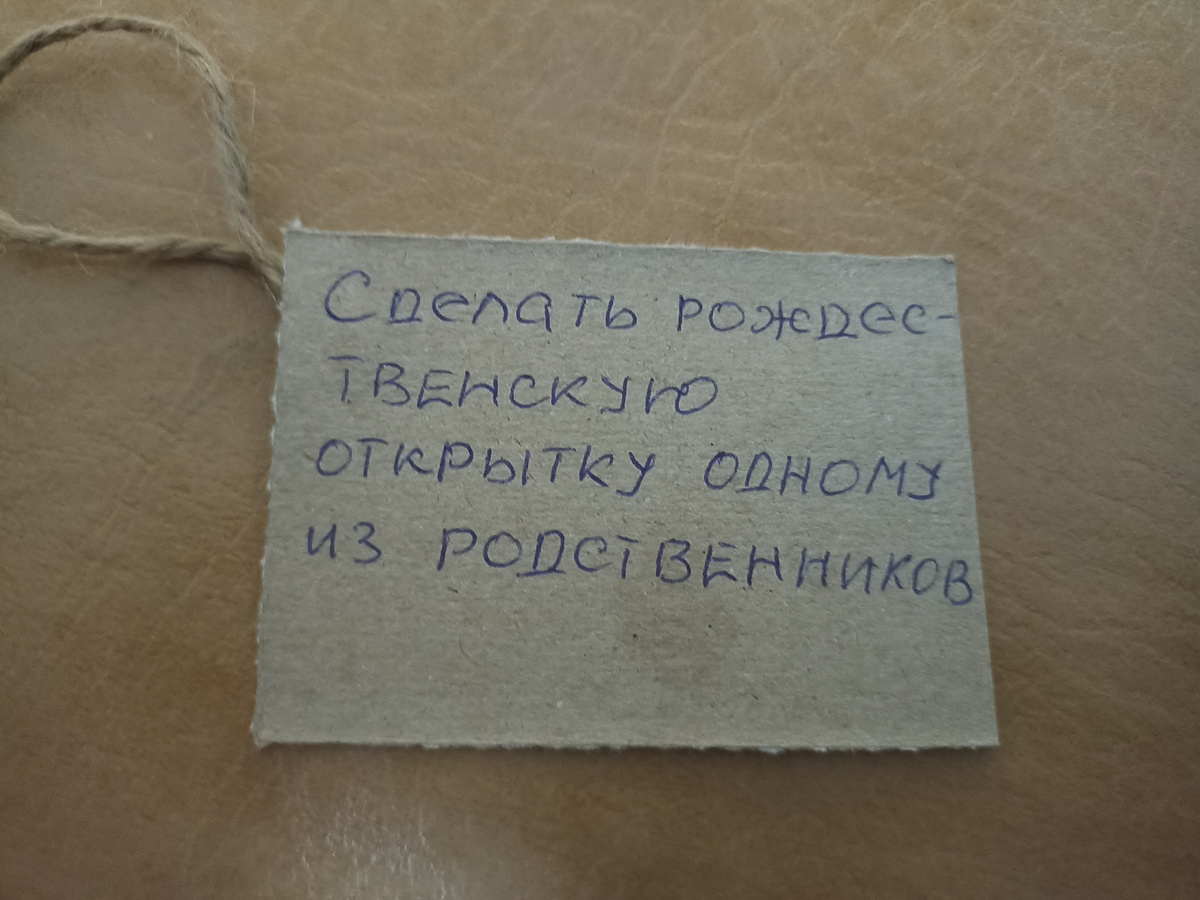 Сделать рождес-
твенскую
открытку одному
из родственников